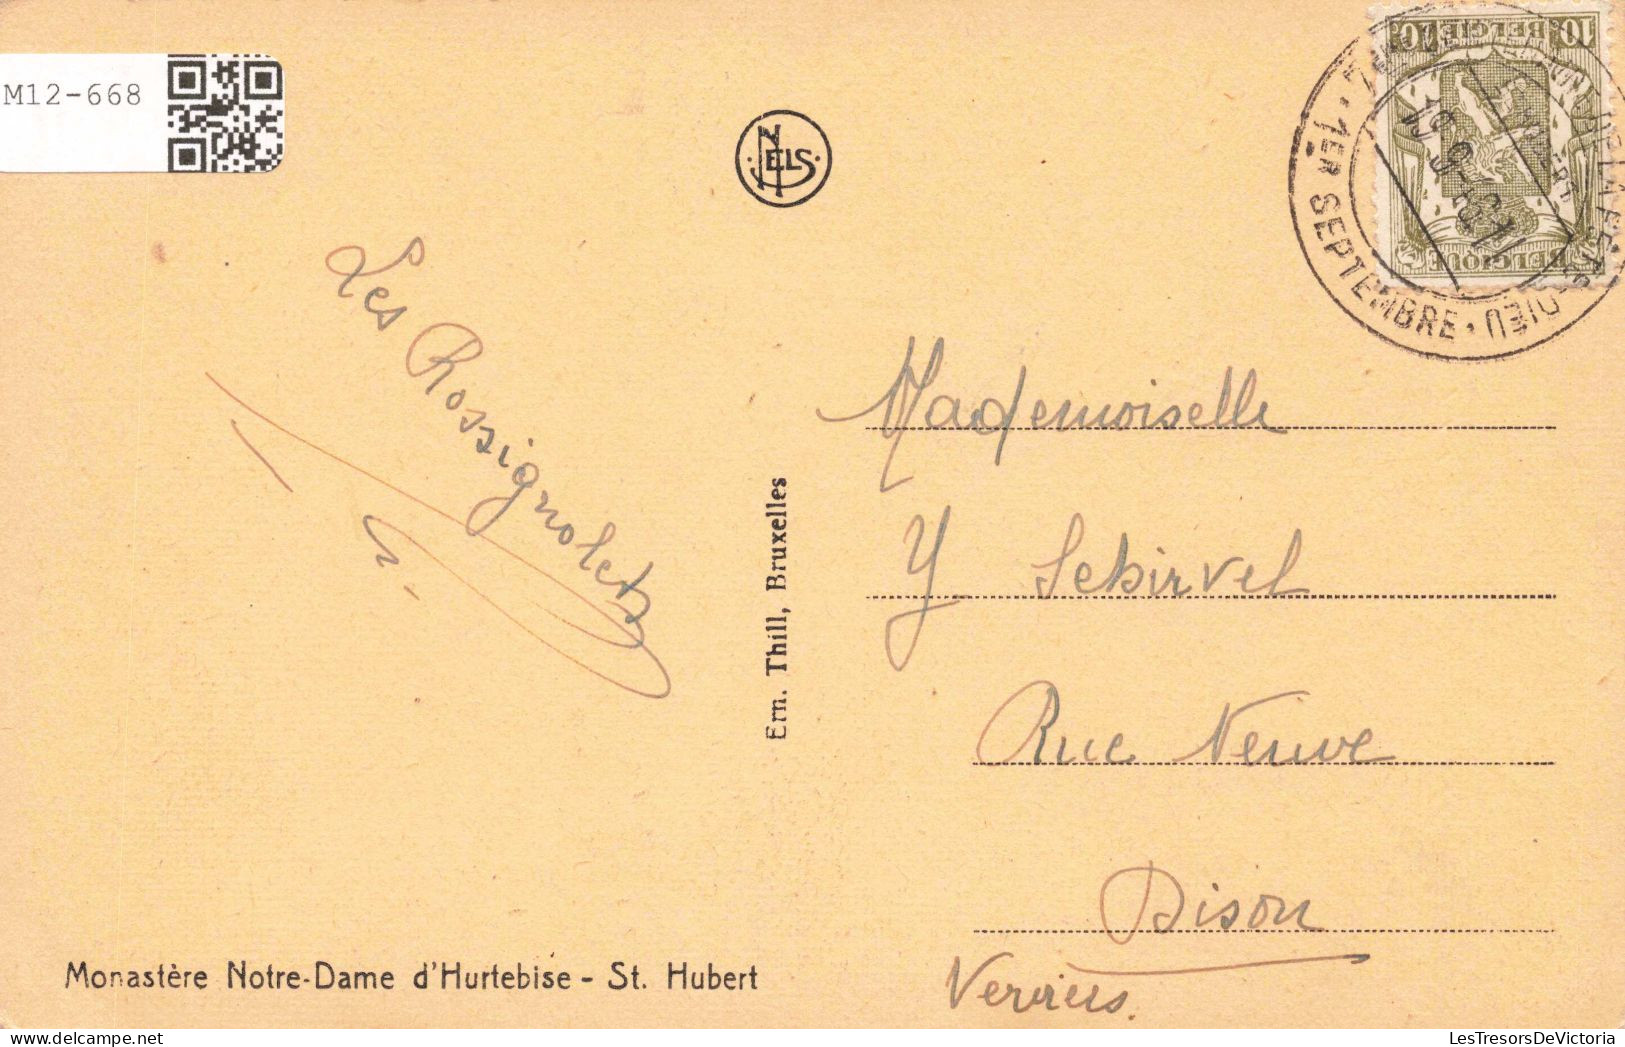 M12-668
NELS
10c BELGIE 10c
BELGIQUE
1ER SEPTEMBRE
DIEU
Les Rossignolets
Ern. Thill, Bruxelles
Mademoiselle
Y Sebirvel
Rue Neuve
Dison
Verviers.
Monastère Notre-Dame d'Hurtebise - St. Hubert
LesTresorsDeVictoria